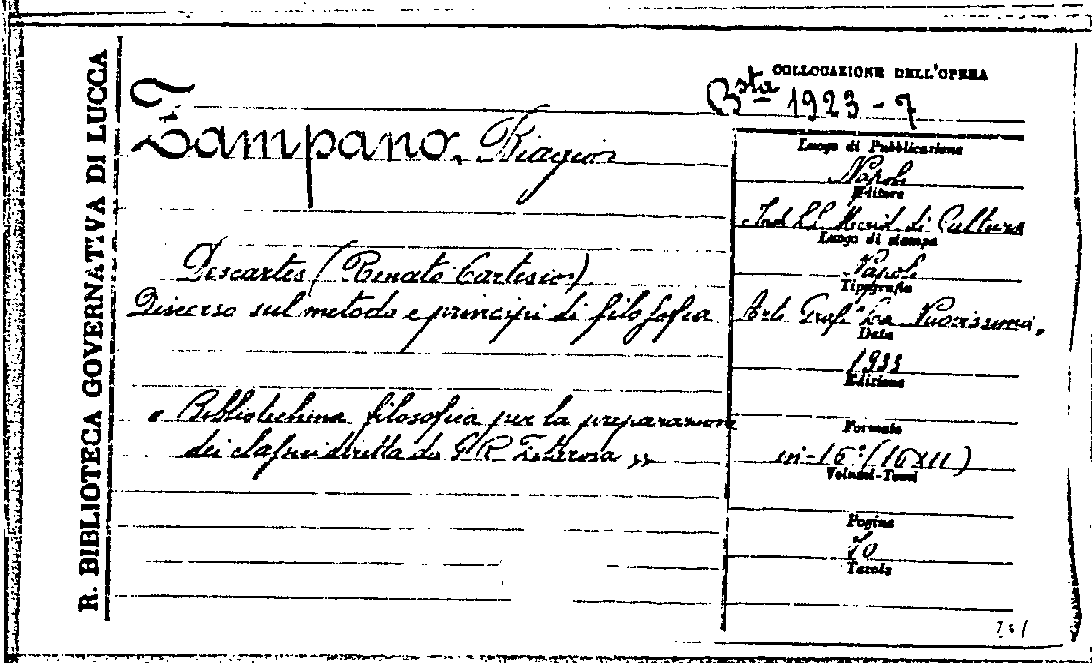 R. BIBLIOTECA GOVERNATIVA DI LUCCA
COLLOCAZIONE DELL'OPERA
Bsta 1923-7
Zampano, Biagio
Descartes (Renato Cartesio)
Discorso sul metodo e principi di filosofia
« Bibliotechina filosofica per la preparazione
dei classici diretta da G R
Luogo di Pubblicazione
Napoli
Editore
Ist. Merid. di Cultura
Luogo di stampa
Napoli
Tipografia
Arti Nuovissima,
Data
1933
Edizione
Formato
in-16° (16XII)
Volumi-Tomi
Pagine
70
Tavole